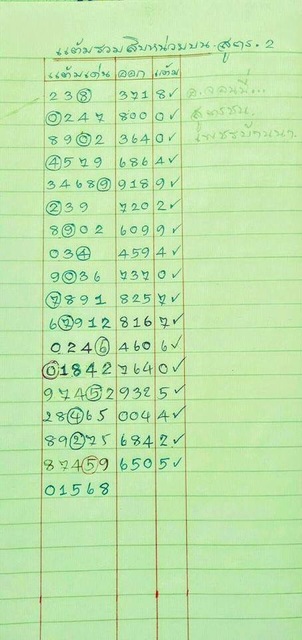 แต้มรวมสิบหน่วยบน สูตร. 2
แต้มเด่น ออก แต้ม
238 371 8✓
0247 800 0✓
8902 364 0✓
4579 686 4✓
34689 918 9✓
239 720 2✓
8902 609 9✓
034 459 4✓
9036 737 0✓
7891 825 7✓
67912 816 7✓
0246 460 6✓
01842 764 0✓
97452 932 5✓
28465 004 4✓
89275 684 2✓
87459 650 5✓
01568